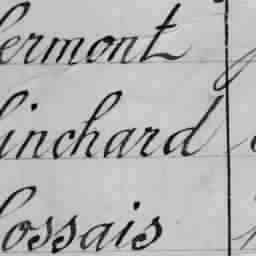 ermont
inchard
ossais